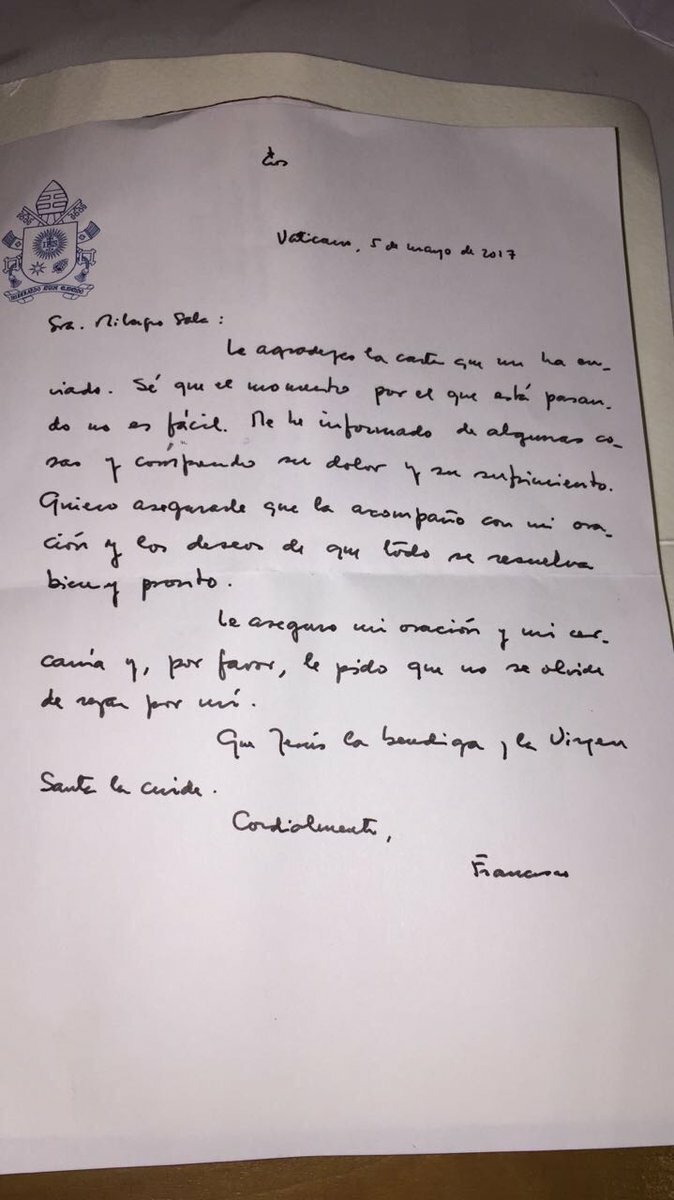 Vaticano, 5 de mayo de 2017
MISERANDO ATQUE ELIGENDO
Sra. Milagro Sala:
Le agradezco la carta que me ha en-
viado. Sé que el momento por el que está pasan-
do no es fácil. Me he informado de algunas co-
sas y comprendo su dolor y su sufrimiento.
Quiero asegurarle que la acompaño con mi ora-
ción y los deseos de que todo se resuelva
bien y pronto.
Le aseguro mi oración y mi cer-
canía y, por favor, le pido que no se olvide
de rezar por mí.
Que Jesús la bendiga y la Virgen
Santa la cuide.
Cordialmente,
Francisco